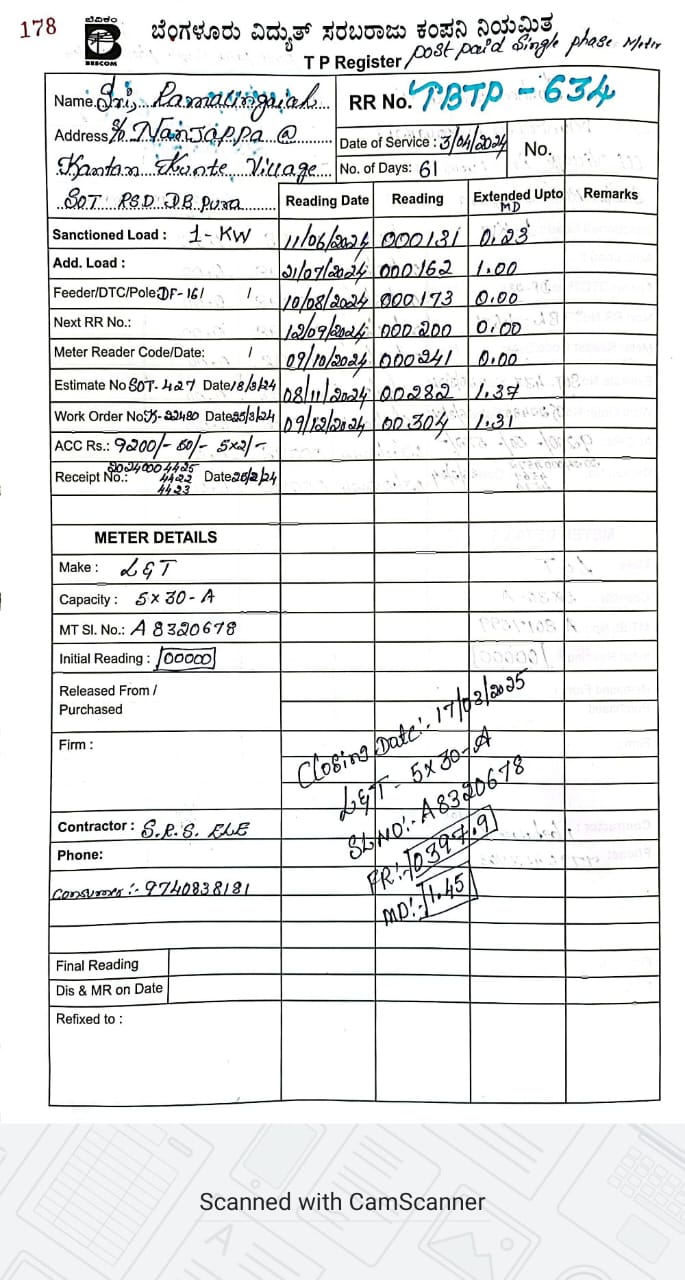 178
ಬೆವಿಕಂ
BESCOM
ಬೆಂಗಳೂರು ವಿದ್ಯುತ್ ಸರಬರಾಜು ಕಂಪನಿ ನಿಯಮಿತ
T P Register / post paid Single phase Meter
Name. Sri, Ramalingaiah
RR No. TBTP - 634
Address: S/o Nanjappa @
Date of Service : 3/04/2024
No.
Kantan Kunte Village
No. of Days: 61
SOT RSD DB Pura
Reading Date Reading Extended Upto MD Remarks
Sanctioned Load : 1 - KW 11/06/2024 000131 0.23
Add. Load : 21/07/2024 000162 1.00
Feeder/DTC/Pole: DF-161 / 10/08/2024 000173 0.00
Next RR No.: 12/09/2024 000200 0.00
Meter Reader Code/Date: / 09/10/2024 000241 0.00
Estimate No SOT-427 Date 18/3/24 08/11/2024 00282 1.37
Work Order No 22480 Date 3/24 09/12/2024 00304 1.31
ACC Rs.: 9200/- 50/- 5x2/-
2024000 4425
Receipt No.: 4422 Date 26/2/24
4423
METER DETAILS
Make : L&T
Capacity : 5 x 30 - A
MT Sl. No.: A 8320678
Initial Reading : 00000
Released From /
Purchased
Closing Date:- 17/03/2025
Firm :
L&T - 5x30-A
SL NO:- A8320678
Contractor : S.R.S. ELE
FR:- 0397.9
Phone:
MD:- 1.45
Consumer :- 9740838181
Final Reading
Dis & MR on Date
Refixed to :
Scanned with CamScanner